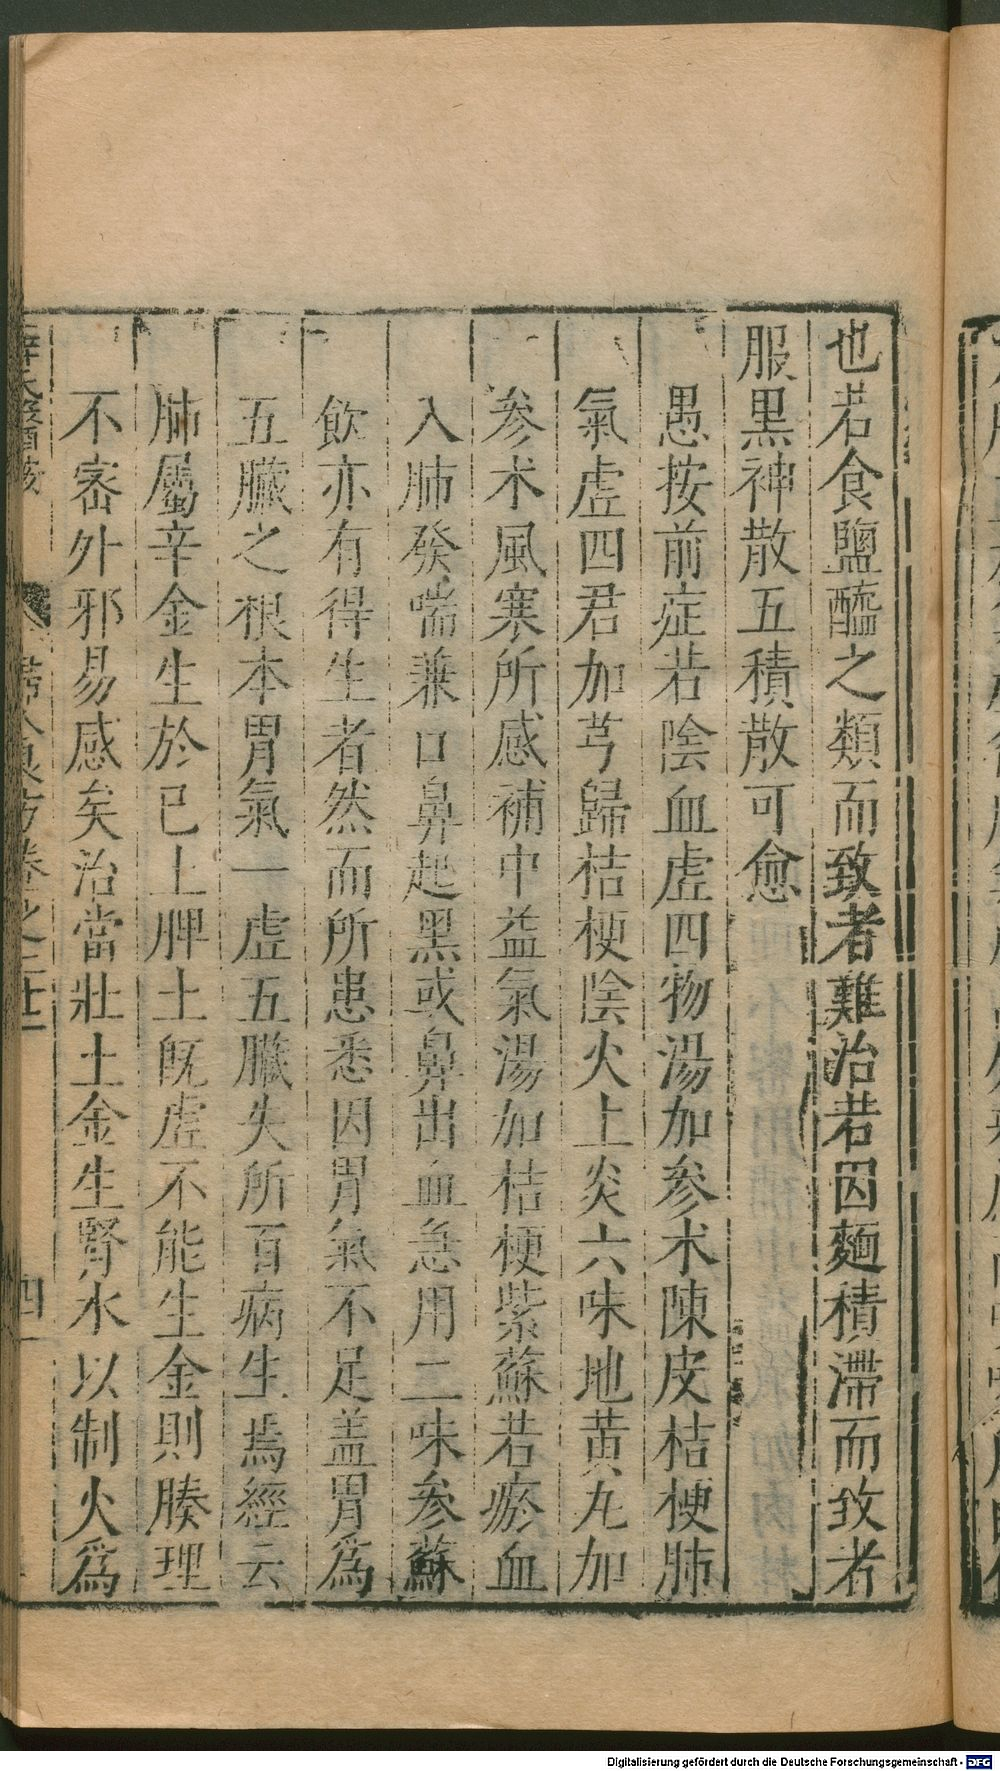 也若食鹽醯之類而致者難治若因麵積滯而致者
服黑神散五積散可愈
愚按前症若陰血虛四物湯加參朮陳皮桔梗肺
氣虛四君加芎歸桔梗陰火上炎六味地黃丸加
參朮風寒所感補中益氣湯加桔梗紫蘇若瘀血
入肺發喘兼口鼻起黑或鼻出血急用二味參蘇
飲亦有得生者然而所患悉因胃氣不足盖胃為
五臟之根本胃氣一虛五臟失所百病生焉經云
肺屬辛金生於已土脾土既虛不能生金則腠理
不密外邪易感矣治當壯土金生腎水以制火為
薛氏醫案
婦人良方卷之二十二
四
Digitalisierung gefördert durch die Deutsche Forschungsgemeinschaft - DFG